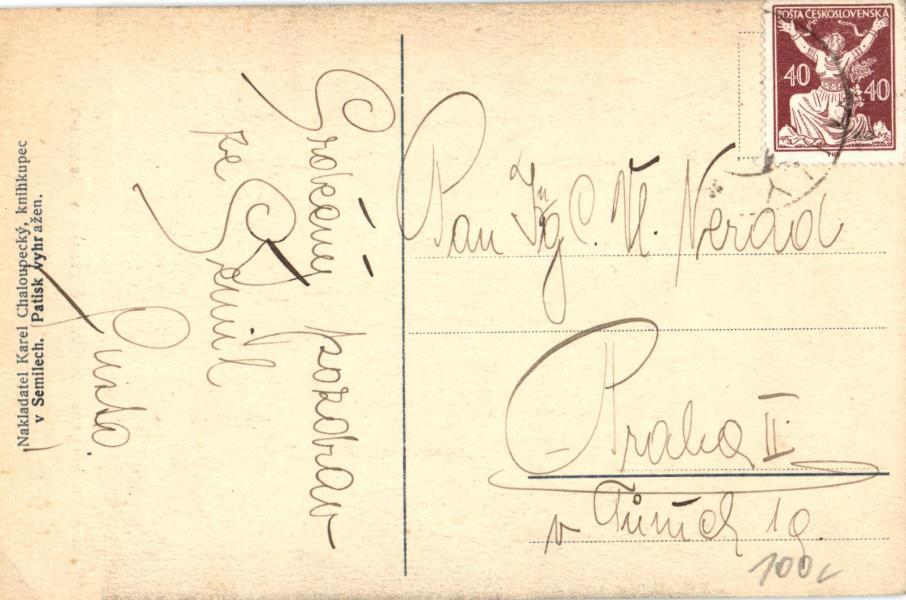 POŠTA ČESKOSLOVENSKÁ
40 40
Pan Ing C. Vl. Nerad
Praha II.
v Tůních 19.
100,-
Srdečný pozdrav
ze Semil
Nakladatel Karel Chaloupecký, knihkupec
v Semilech. Patisk vyhražen.